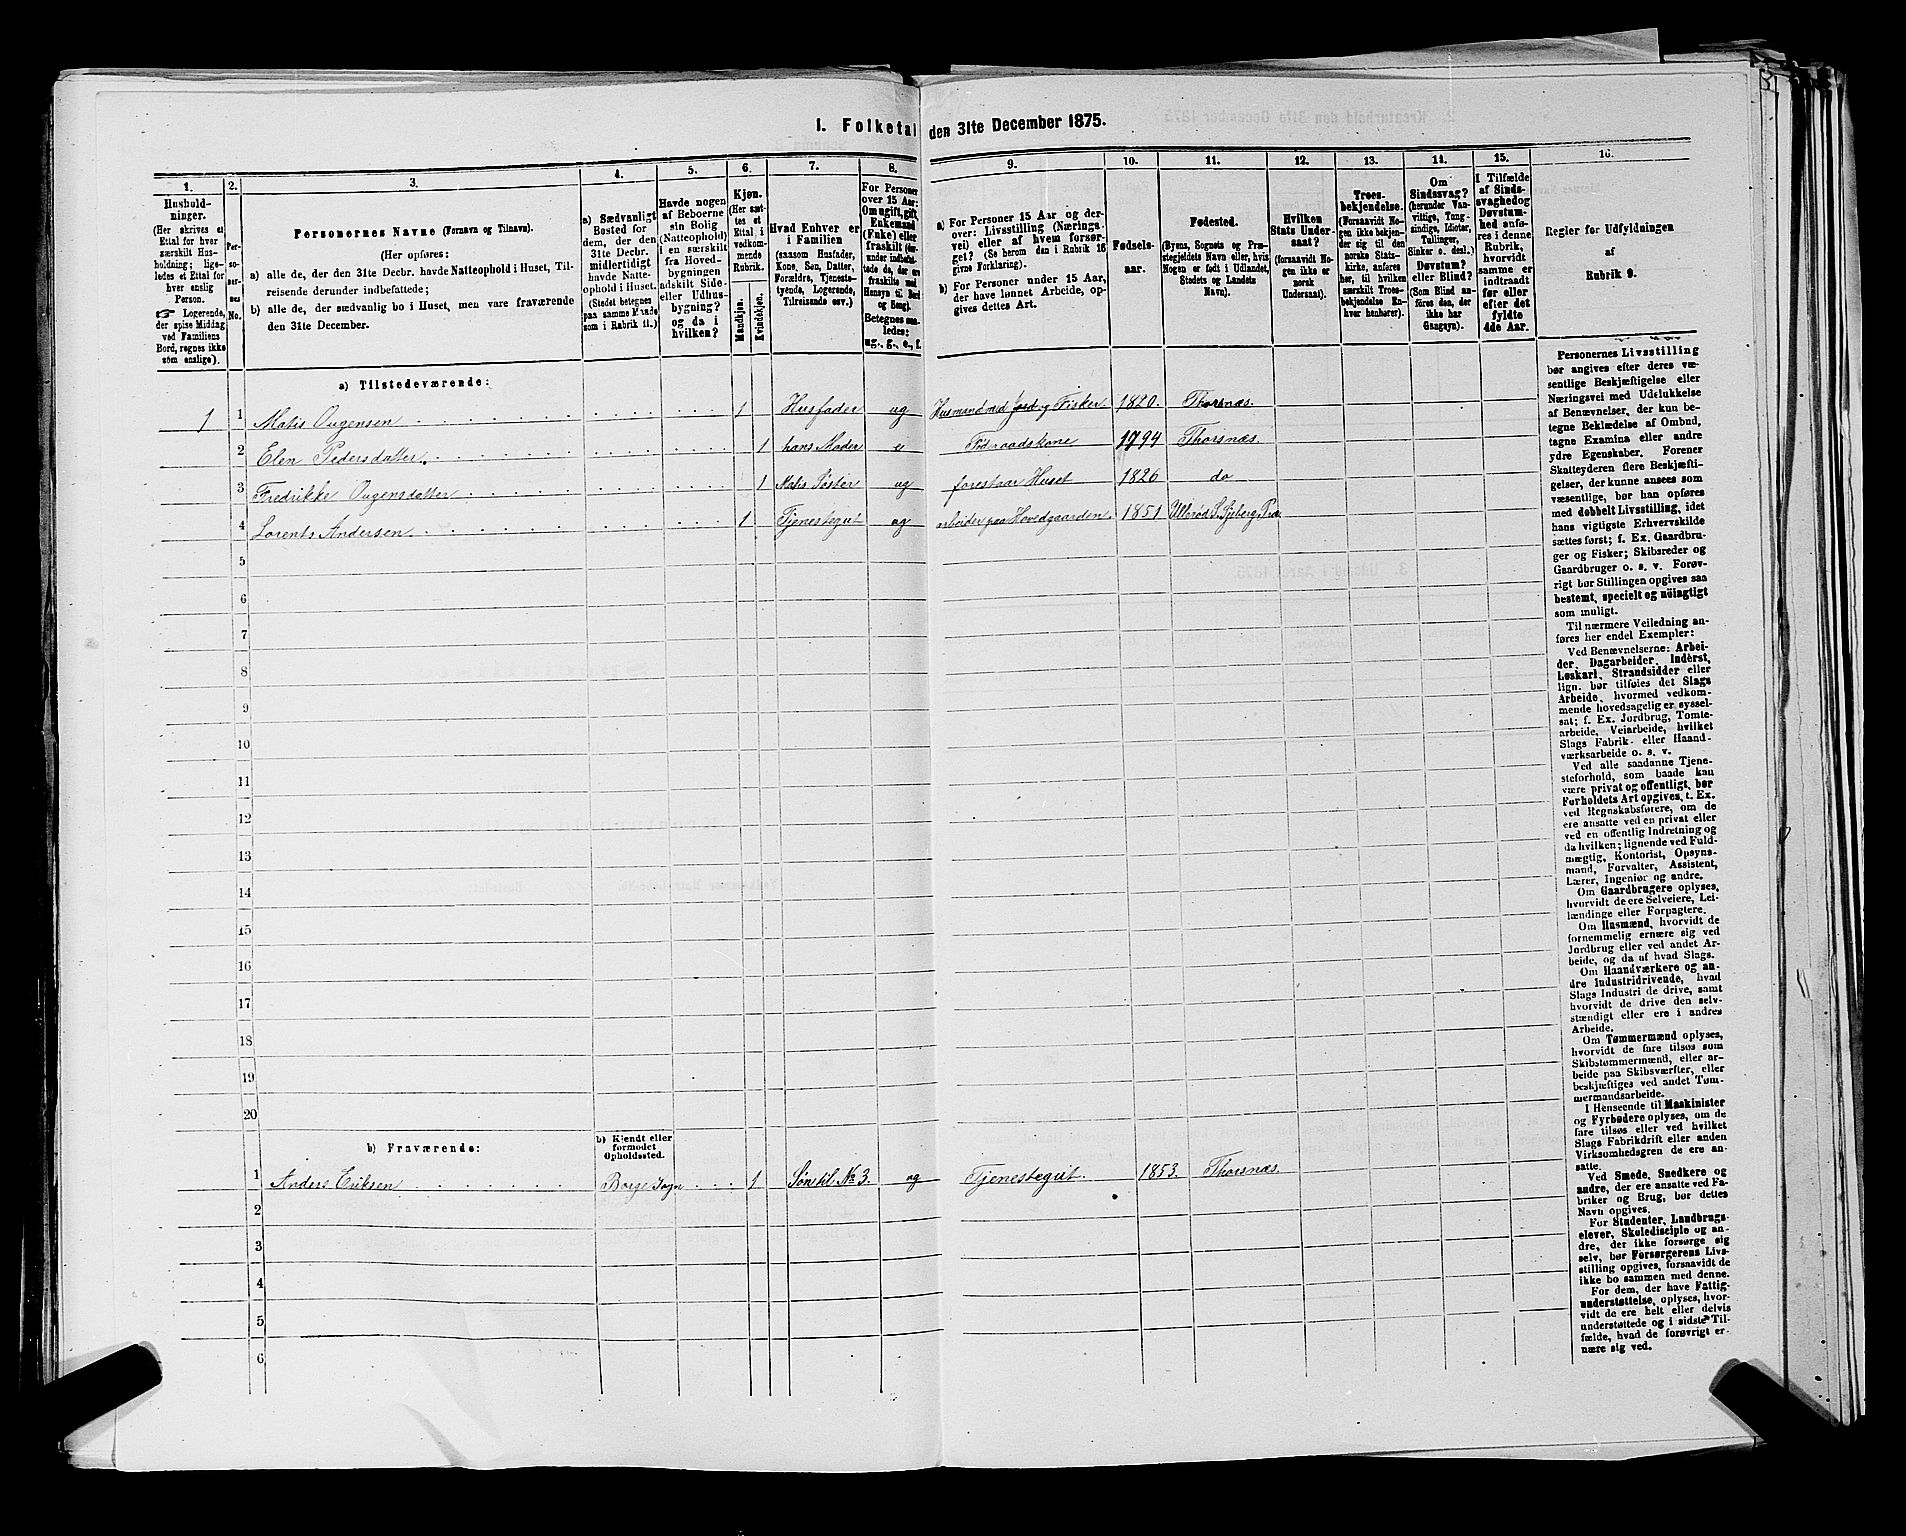 1. Folketal den 31te December 1875.
1. 2. 3. 4. 5. 6. 7. 8. 9. 10. 11. 12. 13. 14. 15. 16.
Hushold-
ninger.
(Her skrives et
Ettal for hver
særskilt Hus-
holdning; lige-
ledes et Ettal for
hver enslig
Person.
☞ Logerende,
der spise Middag
ved Familiens
Bord, regnes ikke
som enslige).
Per-
so-
ner-
nes
No.
Personernes Navne (Fornavn og Tilnavn).
(Her opføres:
a) alle de, der den 31te Decbr. havde Natteophold i Huset, Til-
reisende derunder indbefattede;
b) alle de, der sædvanlig bo i Huset, men vare fraværende
den 31te December.
a) Sædvanligt
Bosted for
dem, der den
31te Decbr.
midlertidigt
havde Natte-
ophold i Huset.
(Stedet betegnes
paa samme Maade
som i Rubrik 11.)
Havde nogen
af Beboerne
sin Bolig
(Natteophold)
i en særskilt
fra Hoved-
bygningen
adskilt Side-
eller Udhus-
bygning?
og da i
hvilken?
Kjøn.
(Her sæt-
tes et
Ettal i
vedkom-
mende
Rubrik.
Mandkjøn.
Kvindekjøn.
Hvad Enhver er
i Familien
(saasom Husfader,
Kone, Søn, Datter,
Forældre, Tjeneste-
tyende, Logerende,
Tilreisende osv.)
For Personer
over 15 Aar:
Om ugift, gift,
Enkemand
(Enke) eller
fraskilt (der-
under indbefat-
tede de, der ere
fraskilte med
Hensyn til Bord
og Seng).
Betegnes saa-
ledes:
ug., g., e., f.
a) For Personer 15 Aar og der-
over: Livsstilling (Nærings-
vei) eller af hvem forsør-
get? (Se herom den i Rubrik 16
givne Forklaring).
b) For Personer under 15 Aar,
der have lønnet Arbeide, op-
gives dettes Art.
Fødsels-
aar.
Fødested.
(Byens, Sognets og Præ-
stegjeldets Navn eller, hvis
Nogen er født i Udlandet,
Stedets og Landets
Navn).
Hvilken
Stats Under-
saat?
(forsaavidt No-
gen ikke er
norsk
Undersaat).
Troes-
bekjendelse.
(Forsaavidt No-
gen ikke bekjen-
der sig til den
norske Stats-
kirke, anføres
her, til hvilken
særskilt Troes-
bekjendelse En-
hver henhører).
Om
Sindssvag?
(herunder Van-
vittige, Tung-
sindige, Idioter,
Tullinger,
Sinker o. desl.)
Døvstum?
eller Blind?
(Som Blind an-
føres den, der
ikke har
Gangsyn).
I Tilfælde
af Sinds-
svaghed og
Døvstum-
hed anfø-
res i denne
Rubrik,
hvorvidt
samme er
indtraadt
før eller
efter det
fyldte
4de Aar.
Regler for Udfyldningen
af
Rubrik 9.
a) Tilstedeværende:
1 1 Matis Ougensen 1 Husfader ug Husmand med Jord og Fisker. 1820. Thorsnæs.
2 Elen Pedersdatter. 1 hans Moder e Föderaadskone 1794 Thorsnæs.
3 Fredrikke Ougensdatter 1 Matis Söster ug forestaar Huset 1826 do
4 Lorents Andersen 1 Tjenestegut ug arbeider paa Hovedgaarden. 1851 Ulleröd S. Pr.
5
6
7
8
9
10
11
12
13
14
15
16
17
18
19
20
b) Fraværende:
b) Kjendt eller
formodet
Opholdssted.
1 Anders Eriksen Borge Sogn 1 Sön til No 3. ug Tjenestegut. 1853. Thorsnæs.
2
3
4
5
6
Personernes Livsstilling
bør angives efter deres væ-
sentlige Beskjæftigelse eller
Næringsvei med Udelukkelse
af Benævnelser, der kun be-
tegne Beklædelse af Ombud,
tagne Examina eller andre
ydre Egenskaber. Forener
Skatteyderen flere Beskjæfti-
gelser, der kunne ansees som
væsentlige, bør han opføres
med dobbelt Livsstilling, idet
hans vigtigste Erhvervskilde
sættes først; f. Ex. Gaardbru-
ger og Fisker; Skibsreder og
Gaardbruger o. s. v. Forøv-
rigt bør Stillingen opgives saa
bestemt, specielt og nöiagtigt
som muligt.
Til nærmere Veiledning an-
føres her endel Exempler:
Ved Benævnelserne: Arbei-
der, Dagarbeider, Inderst,
Løskarl, Strandsidder eller
lign. bør tilføies det Slags
Arbeide, hvormed vedkom-
mende hovedsagelig er syssel-
sat; f. Ex. Jordbrug, Tomte-
arbeide, Veiarbeide, hvilket
Slags Fabrik- eller Haand-
værksarbeide o. s. v.
Ved alle saadanne Tjene-
steforhold, som baade kan
være privat og offentligt, bør
Forholdets Art opgives, t. Ex.
ved Regnskabsførere, om de
ere ansatte ved en privat eller
ved en offentlig Indretning og
da hvilken; lignende ved Fuld-
mægtig, Kontorist, Opsyns-
mand, Forvalter, Assistent,
Lærer, Ingeniør og andre.
Om Gaardbrugere oplyses,
hvorvidt de ere Selveiere, Lei-
lændinge eller Forpagtere.
Om Husmænd, hvorvidt de
fornemmelig ernære sig ved
Jordbrug eller ved andet Ar-
beide, og da af hvad Slags.
Om Haandværkere og an-
dre Industridrivende, hvad
Slags Industri de drive, samt
hvorvidt de drive den selv-
stændigt eller ere i andres
Arbeide.
Om Tømmermænd oplyses,
hvorvidt de fare tilsøs som
Skibstømmermænd, eller ar-
beide paa Skibsværfter, eller
beskjæftiges ved andet Tøm-
mermandsarbeide.
I Henseende til Maskinister
og Fyrbødere oplyses, om de
fare tilsøs eller ved hvilket
Slags Fabrikdrift eller anden
Virksomhedsgren de ere an-
satte.
Ved Smede, Snedkere og
andre, der ere ansatte ved Fa-
briker og Brug, bør dettes
Navn opgives.
For Studenter, Landbrugs-
elever, Skoledisciple og an-
dre, der ikke forsørge sig
selv, bør Forsørgerens Livs-
stilling opgives, forsaavidt de
ikke bo sammen med denne.
For dem, der have Fattig-
understøttelse, oplyses, hvor-
vidt de ere helt eller delvis
understøttede og i sidste Til-
fælde, hvad de forøvrigt er-
nære sig ved.